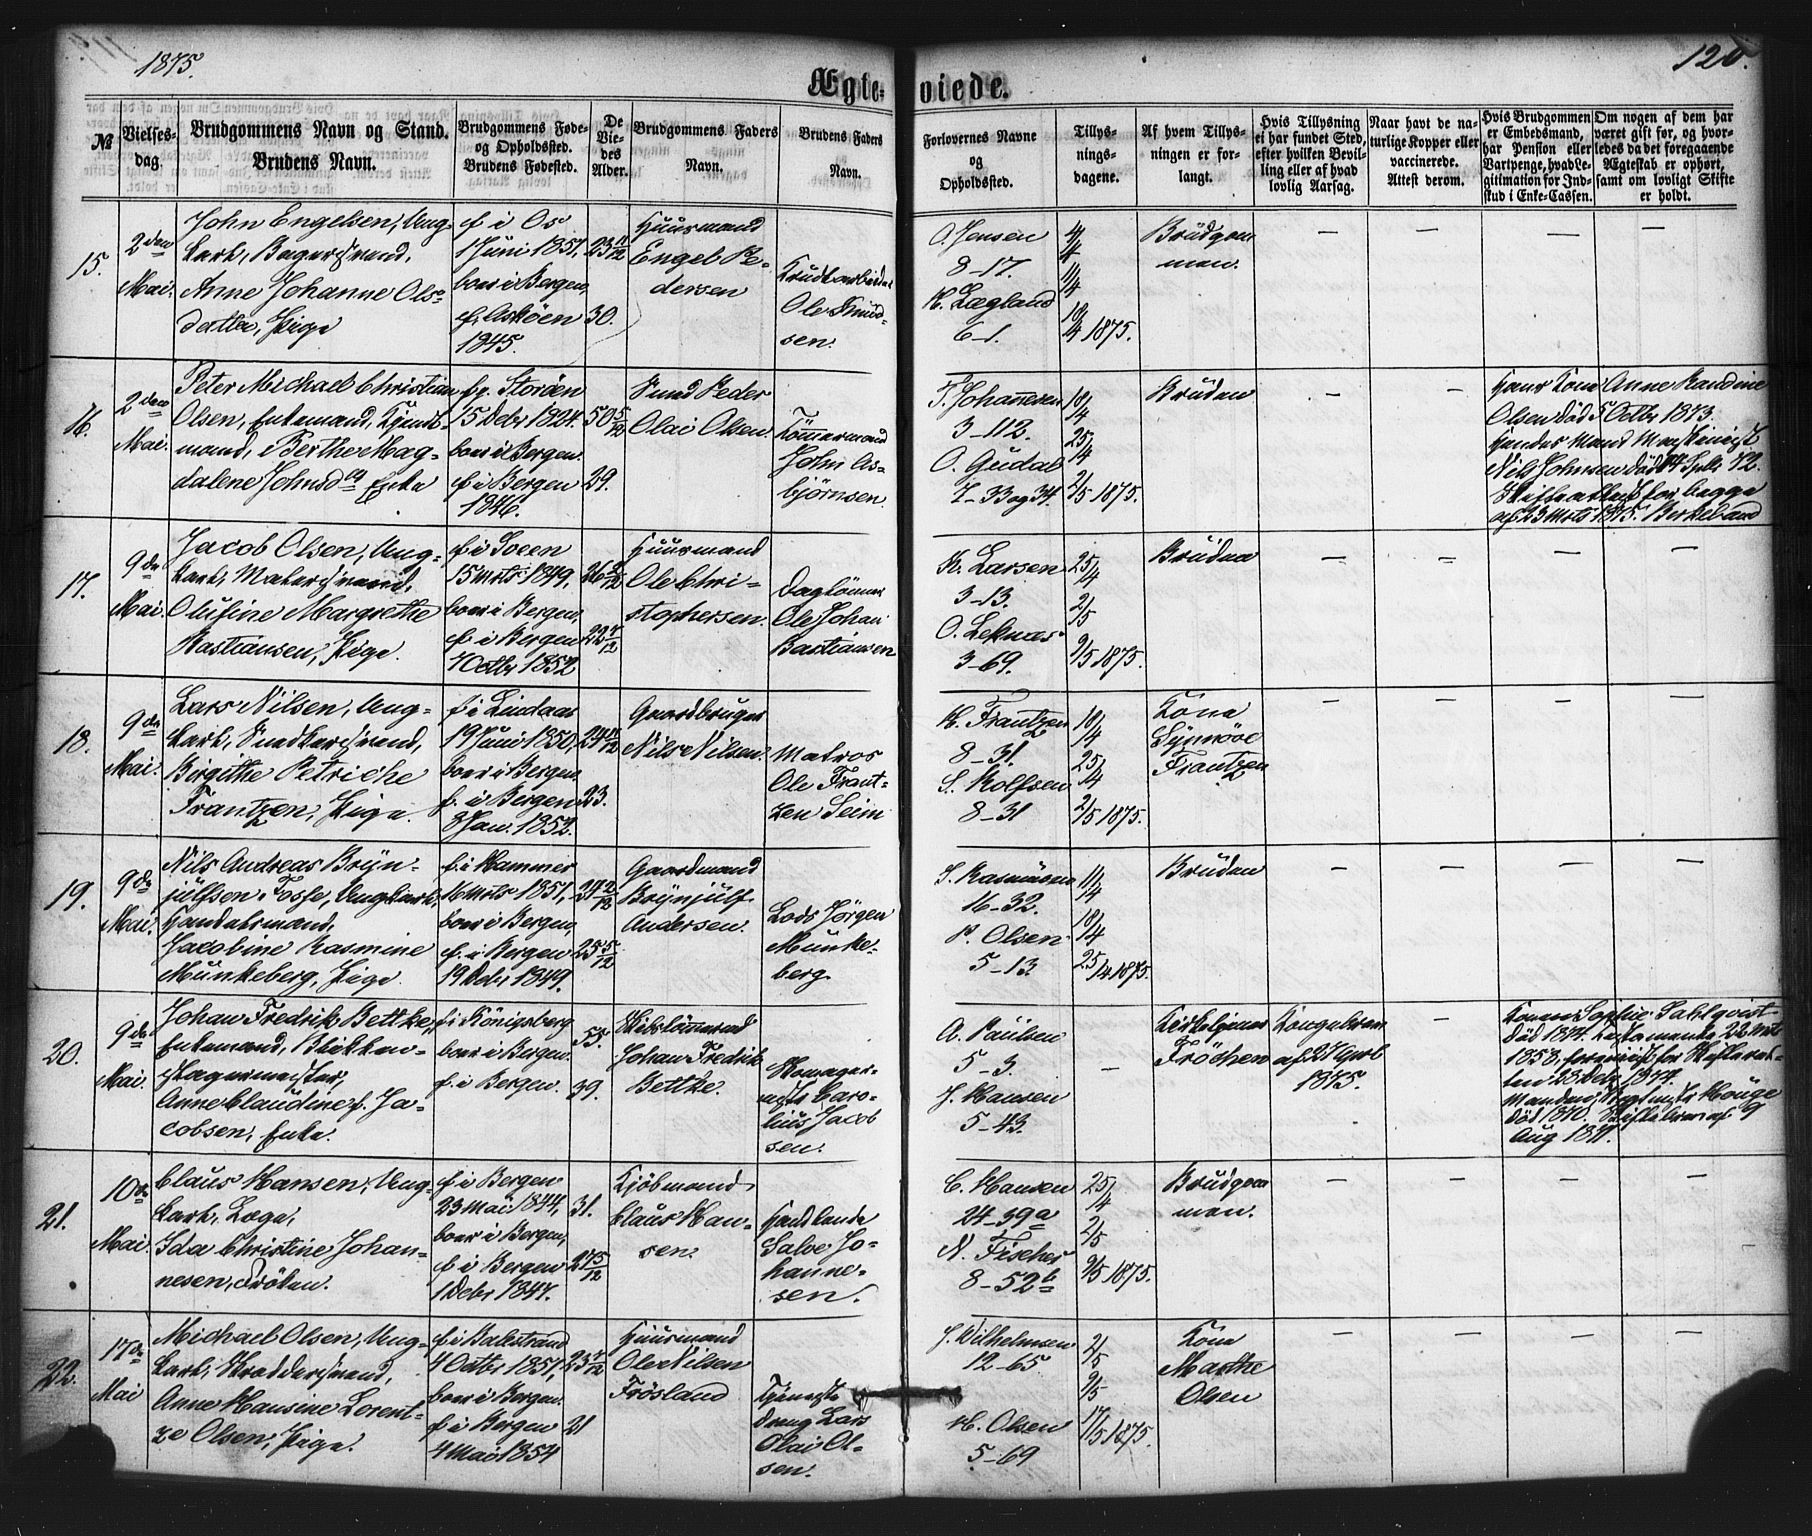 1875.
120.
Ægte-
viede.
№
Vielses-
dag.
Brudgommens Navn og Stand.
Brudens Navn.
Brudgommens Føde-
og Opholdsted.
Brudens Fødested.
De
Vie-
des
Alder.
Brudgommens Faders
Navn.
Brudens Faders
Navn.
Forlovernes Navne
og
Opholdsted.
Tillys-
nings-
dagene.
Af hvem Tillys-
ningen er for-
langt.
Hvis Tillysning
ei har fundet Sted,
efter hvilken Bevil-
ling eller af hvad
lovlig Aarsag.
Naar havt de na-
turlige Kopper eller
vaccinerede.
Attest derom.
Hvis Brudgommen
er Embedsmand,
har Pension eller
Vartpenge, hvad Le-
gitimation for Ind-
skud i Enke-Cassen.
Om nogen af dem har
været gift før, og hvor-
ledes da det foregaaende
Ægteskab er ophørt,
samt om lovligt Skifte
er holdt.
15.
2den
Mai.
John Engelsen, Ung-
karl, Bagersvend,
Anne Johanne Ols-
datter, Pige
f. i Os
1 Juni 1851,
boer i Bergen,
f. Askøen
1845.
23 11/12
30.
Huusmand
Engel Pe-
dersen
Krudtarbeider
Ole Knud-
sen.
O. Jensen
8-17.
K. Lægland
6-1.
4/4
11/4
18/4 1875.
Brüdgom
men.
16.
2den
Mai.
Peter Michael Christian
Olsen, Enkemand,
mand, Berthe Mag-
dalene Johnsd. Enke
f. Storöen
15 Debr 1824.
boer i Bergen.
f. i Bergen
1846.
50 5/12
29.
Peder
Olai Olsen.
Tömmermand
John As-
björnsen.
T. Johannesen
3-112.
O. Gudal
7-33 og 34.
18/4
25/4
2/5 1875.
Brüden
Hans Kone Anne Randine
Olsen död 5 Octbr 1873.
Hendes Mand Maskinist
Nils Johnsen död 14 Septr 72.
Skifteattest for begge
af 23 Mrts 1875. Birkeland
17.
9de
Mai.
Jacob Olsen, Ung-
karl, Malersvend,
Olufine Margrethe
Bastiansen, Pige.
f. i Sveen
15 Mrts 1849,
boer i Bergen,
f. i Bergen
7 Octbr 1852
26 2/12
22 7/12
Huusmand
Ole Chri-
stophersen.
Daglönner
Ole Johan
Bastiansen
K. Larsen
3-13.
O. Leknæs
3-69.
25/4
2/5
9/5 1875.
Brüden
18.
9de
Mai.
Lars Nilsen, Ung-
karl, Snedkersvend,
Birgithe Petriche
Frantzen, Pige.
f. i Lindaas
19 Juni 1850,
boer i Bergen,
f. i Bergen
8 Jan. 1852.
24 11/12
23.
Gaardbruger
Nils Nilsen.
Matros
Ole Frant-
zen Seim
H. Frantzen
8-31.
S. Rolfsen
8-31
18/4
25/4
2/5 1875.
Kone
Synnöve
Frantzen
19.
9de
Mai.
Nils Andreas Bryn-
jülfsen Fosse, Ungkarl,
Handelsmand,
Jacobine Rasmine
Munkeberg, Pige.
f. i Hammer
16 Mrts 1851,
boer i Bergen,
f. i Bergen
19 Debr 1849.
24 2/12
25 5/12
Gaardmand
Brynjülf
Andersen.
Lods Jörgen
Münke-
berg.
S. Rasmüsen
16-32.
P. Olsen
5-13
11/4
18/4
25/4 1875.
Brüden
20.
9de
Mai.
Johan Fredrik Bettke,
Enkemand, Blikken-
slagermester,
Anne Claudine f. Ja-
cobsen, Enke.
f. i Königsberg
boer i Bergen.
f. i Bergen.
55.
39.
Skibstömmermd
Johan Fredrik
Bettke.
Skomager-
mstr Caro-
lius Jacob
sen.
A. Paulsen
5-3.
J. Hansen
5-43.
Kirketjener
Fröchen
Kongebrev
af 27 April
1875.
Konen Sophie Dahlqvist
död 1874. Testamente 22 Mrts
1858, forevist for Skifteret-
ten 28 Debr 1874.
Manden, Houge
död 1870. Skiftebrev af 9
Aug 1871.
21.
10de
Mai.
Claus Hansen, Ung-
karl, Læge,
Ida Christine Johan-
nesen, Fröken.
f. i Bergen
23 Mai 1844,
boer i Bergen,
f. i Bergen
1 Debr 1847.
31.
27 5/12
Kjöbmand
Claus Han-
sen.
Handlende
Salve Jo-
hanne-
sen.
C. Hansen
24-39a
N. Fischer
8-52b
25/4
2/5
9/5 1875.
Brüdgom
men.
22.
17de
Mai
Michael Olsen, Ung-
karl, Skreddersvend,
Anne Hansine Lorent-
ze Olsen, Pige.
f. i Balestrand
4 Octbr 1851,
boer i Bergen.
f. i Bergen
4 Mai 1854
23 7/12
21
Huusmand
Ole Nilsen
Frösland
Tjeneste
dreng Lars
Olai Ol-
sen.
J. Wilhelmsen
12-65
H. Olsen
5-69
2/5
9/5
17/5 1875.
Kone
Marthe
Olsen